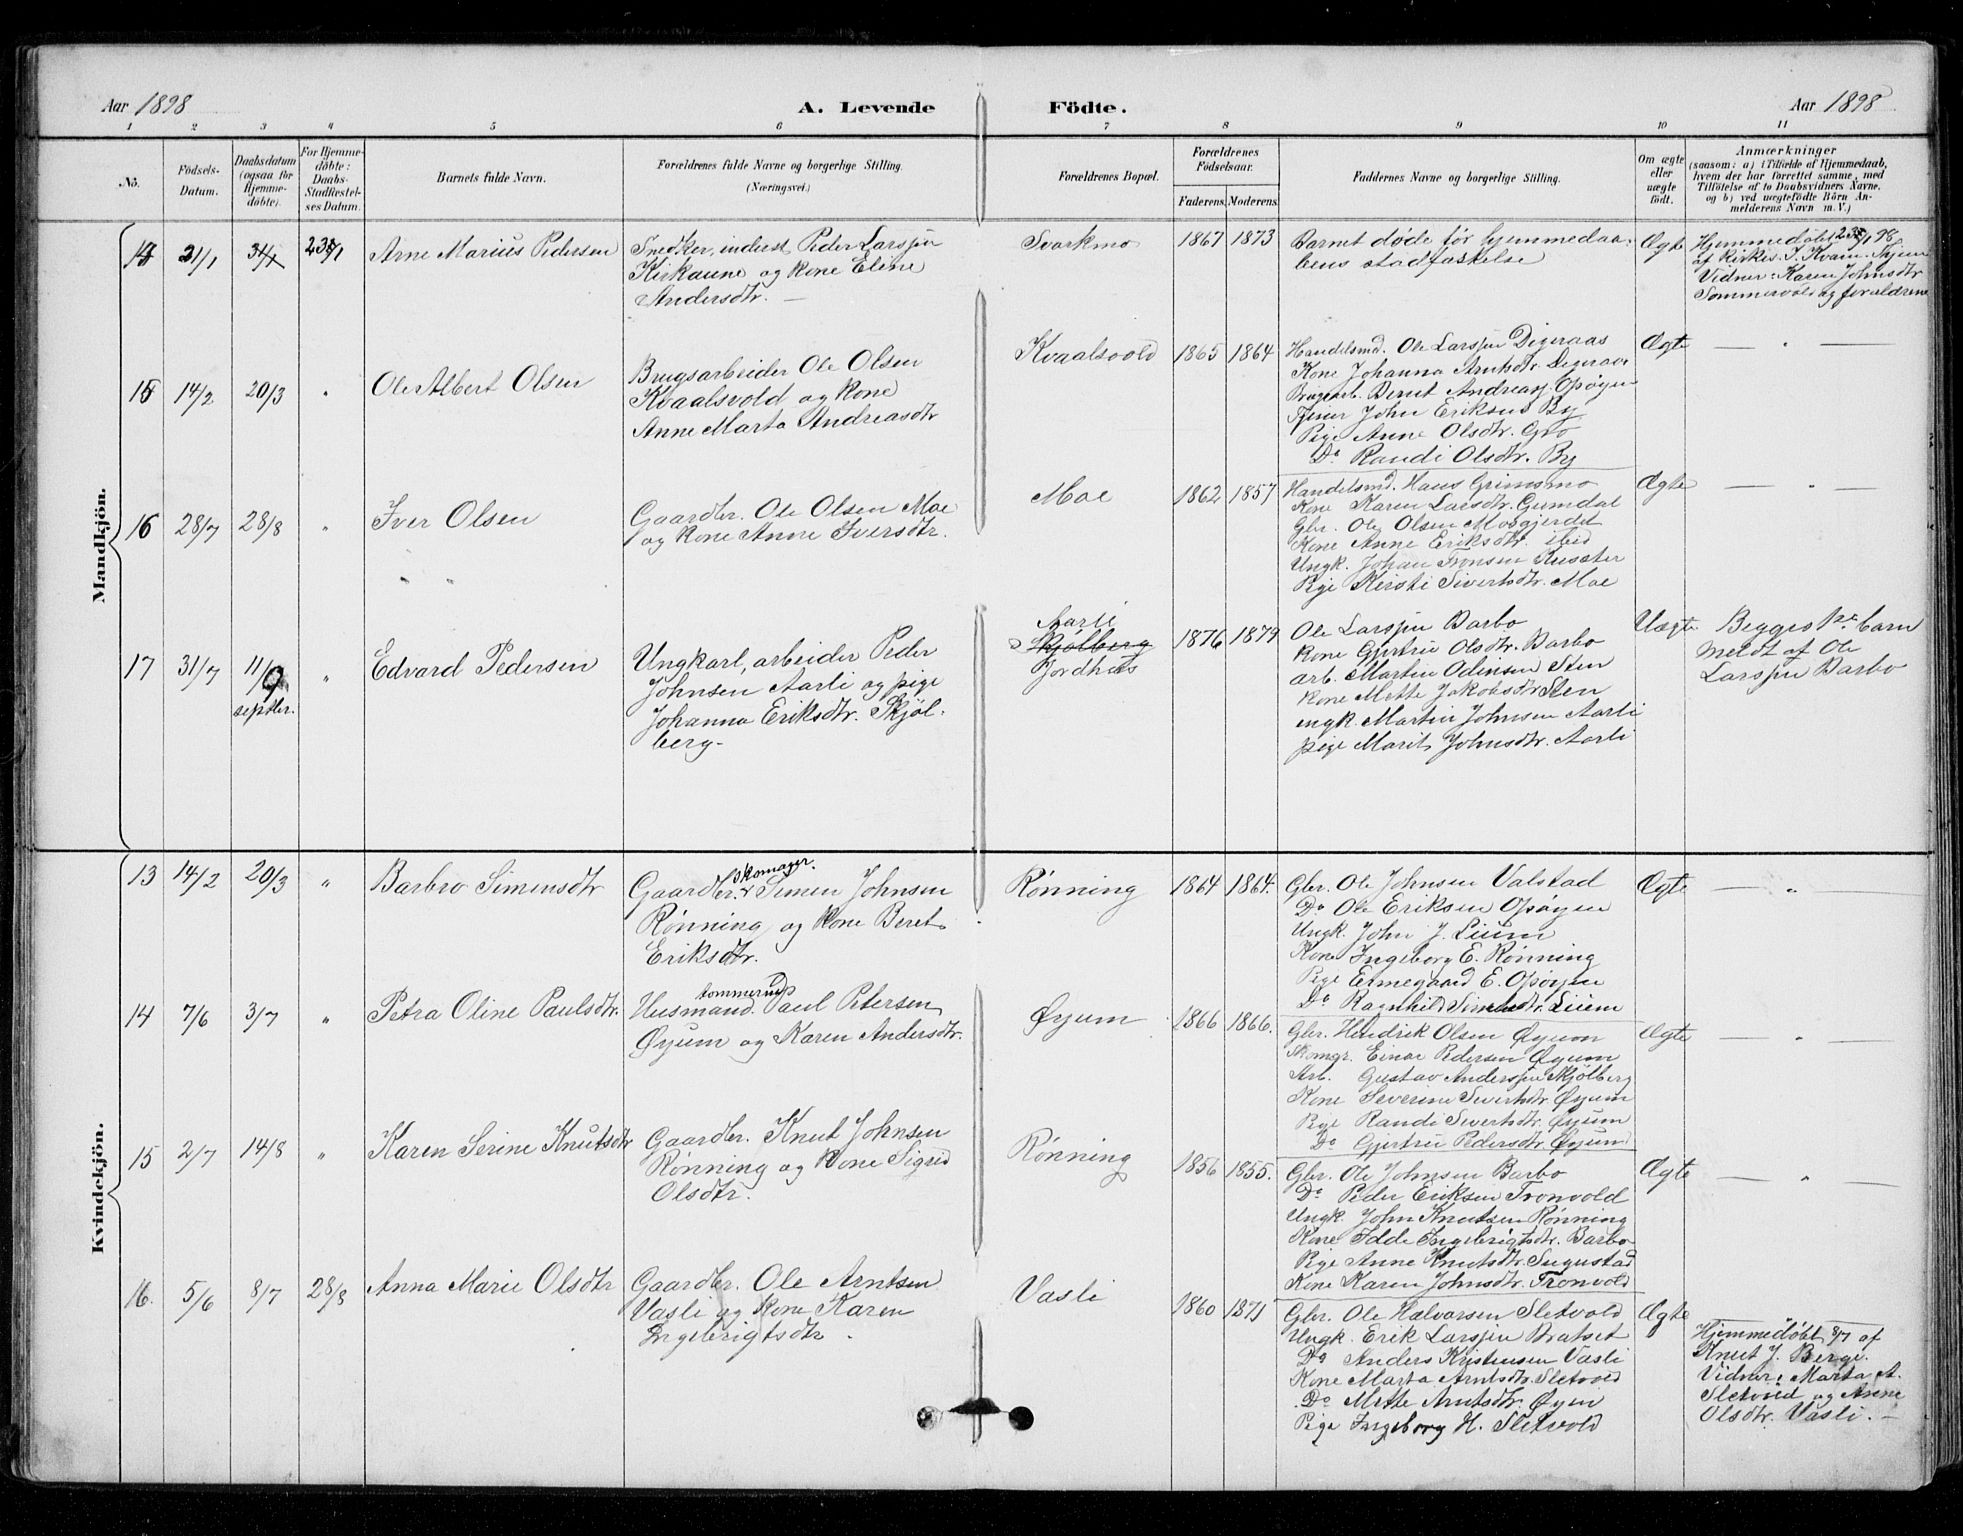 Aar 1898
A. Levende
Födte.
Aar 1898
1 2 3 4 5 6 7 8 9 10 11
No.
Födsels-
Datum.
Daabsdatum
(ogsaa for
Hjemme-
döbte).
For Hjemme-
döbte:
Daabs-
Stadfæstel-
ses Datum.
Barnets fulde Navn.
Forældrenes fulde Navne og borgerlige Stilling.
(Næringsvei.)
Forældrenes Bopæl.
Forældrenes
Födselsaar.
Faderens. Moderens.
Faddernes Navne og borgerlige Stilling.
Om ægte
eller
uægte
födt.
Anmærkninger
(saasom: a) i Tilfælde af Hjemmedaab,
hvem der har forrettet samme, med
Tilföielse af to Daabsvidners Navne.
og b) ved uægtefödte Börn An-
melderens Navn m. V.)
Mandkjön.
14 21/1 31/1 23/1 Arne Marius Pedersen
Snedker, inderst Peder Larssen
Kirkaune og kone Eline
Andersdtr. —
Svarkmo 1867 1873
Barnet døde før hjemmedaa-
bens stadfæstelse
Ægte
Hjemmedøbt 23/1 98
af Kirkes. J. Kvam. Tyien
Vidner: Karen Johnsdtr
Sommervold og forældrene
15 14/2 20/3 " Ole Albert Olsen
Brugsarbeider Ole Olsen
Kvaalsvold og kone
Anne Marta Andreasdtr
Kvaalsvold 1865 1864
Handelsmd. Ole Larssen Digeraas
Kone Johanna Arntsdtr. Digeraas
Brugsarb. Bernt Andreass. Opøyen
Tjener John Eriksen By
Pige Anne Olsdtr. Gro
Do Randi Olsdtr. By
Ægte — " —
16 28/7 28/8 " Iver Olsen
Gaardbr. Ole Olsen Moe
og kone Anne Iversdtr.
Moe 1862 1857
Handelsmd. Hans Grimsmo
Kone Karen Larsdtr. Gumdal
Gbr. Ole Olsen Mosgjerdet
Kone Anne Eriksdtr. ibid
Ungk. Johan Tronsen Kusæter
Pige Kirsti Sivertsdtr. Moe
Ægte — " —
17 31/7 11/9
septbr.
" Edvard Pedersen
Ungkarl, arbeider Peder
Johnsen Aarli og pige
Johanna Eriksdtr. Skjøl-
berg-
Aarli
Skjølberg
Jordhus
1876 1879
Ole Larssen Barbo
kone Gjertru Olsdtr. Barbo
arb. Martin Odinsen Sten
kone Mette Jakobsdtr Sten
ungk. Martin Johnsen Aarli
pige Marit Johnsdtr. Aarli
Uægte
Begges 1ste barn
Meldt af Ole
Larssen Barbo
Kvindekjön.
13 14/2 20/3 " Barbro Simensdtr
skomager.
Gaardbr. & Simen Johnsen
Rønning og kone Beret
Eriksdtr.
Rønning 1864 1864.
Gbr. Ole Johnsen Valstad
Do Ole Eriksen Opøyen
Ungk. John J. Lium
Kone Ingeborg E. Rønning
Pige Ermegaard E. Opøyen
Do Ragnhild Simensdtr. Lium
Ægte — " —
14 7/6 3/7 " Petra Oline Paulsdtr.
Husmand. Paul Petersen
Øyum og Karen Andersdtr.
Øyum 1866 1866.
Gbr. Hendrik Olsen Øyum
Skomgr. Einar Pedersen Øyum
Arb. Gustav Anderssen Skjølberg
Kone Severine Sivertsdtr. Øyum
Pige Randi Sivertsdtr. Øyum
Do Gjertru Pedersdtr. Øyum
Ægte — " —
15 2/7 14/8 " Karen Serine Knutsdtr
Gaardbr. Knut Johnsen
Rønning og kone Sigrid
Olsdtr.
Rønning 1856 1855.
Gbr. Ole Johnsen Barbo
Do Peder Eriksen Tronvold
Ungk. John Knutsen Rønning
Kone Idde Ingebrigtsdtr. Barbo
Pige Anne Knutsdtr. Sugustad
Kone Karen Johnsdtr. Tronvold
Ægte — " —
16. 5/6 8/7 28/8 Anna Marie Olsdtr
Gaardbr. Ole Arntsen
Vasli og kone Karen
Ingebrigtsdtr.
Vasli 1860 1871
Gbr. Ole Halvorsen Sletvold
Ungk. Erik Larssen Bratset
Do Anders Kristensen Vasli
Kone Marta Arntsdtr. Sletvold
Do Mette Arntsdtr. Øyum
Pige Ingeborg H. Sletvold
Ægte
Hjemmedøbt 8/7 af
Knut J. Berge.
Vidner: Marta A.
Sletvold og Anne
Olsdtr. Vasli. —